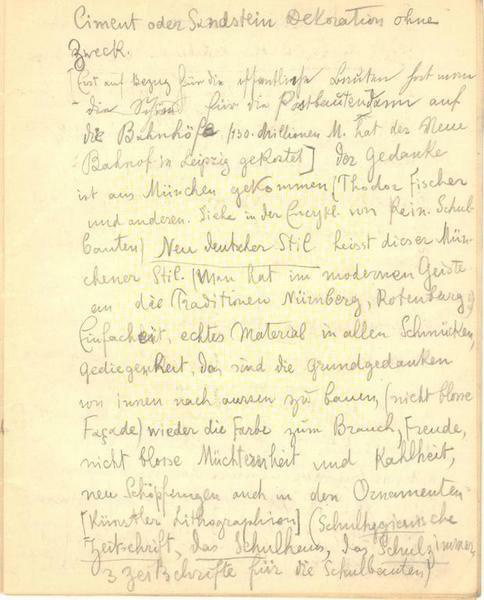 Ciment oder Sandstein Dekoration ohne
Zweck.
[Erst auf Bezug für die öffentliche Bauten fort man
die Schul für die Postbauten dann auf
die Bahnhöfe /130. Millionen M. hat des Neue
Bahnhof in Leipzig gekostet] Der Gedanke
ist aus München gekommen (Thodor Fischer
und anderen. Siehe in der Encykl. von Rein. Schul-
bauten) Neu deutscher Stil heisst dieser Mün-
chener Stil. (Man hat im modernen Geiste
an die Traditionen Nürnberg, Rotenburg)
Einfacheit, echtes Material in allen Schmücken,
gediegenheit, das sind die grundgedanken
von innen nach aussen zu bauen, (nicht blosse
Façade) wieder die Farbe zum Brauch, Freude,
nicht blosse Nüchternheit und Kahlheit,
neu Schöpfungen auch in den Ornamenten
[Künstler Lithographion] (Schulhygienische
Zeitschrift, das Schulhaus, das Schulzimmer,
3 Zeitschrifte für die Schulbauten)